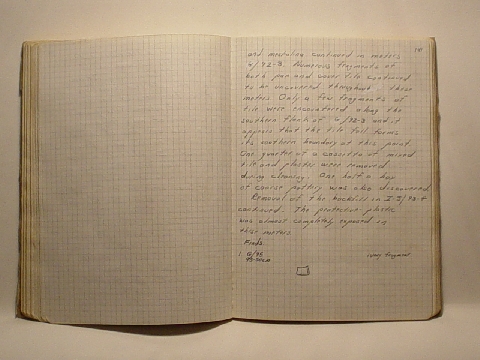 and mevaling continued in meters
4/92-3. Numerous fragments of
both pan and cover tile continued
to be uncovered throughout these
meters. Only a few fragments of
tile were encountered along the
southern flank of 4/92-3 and it
appears that the tile fall forms
its southern boundary at this point.
One quarter of a cassetta of mixed
tile and plaster were removed
during cleaning. One half a bag
of coarse pottery was also discovered.
Removal of the backfill in I 3/93-4
continued. The protective plastic
was almost completely exposed in
these meters
Finds:
1 ivory fragment